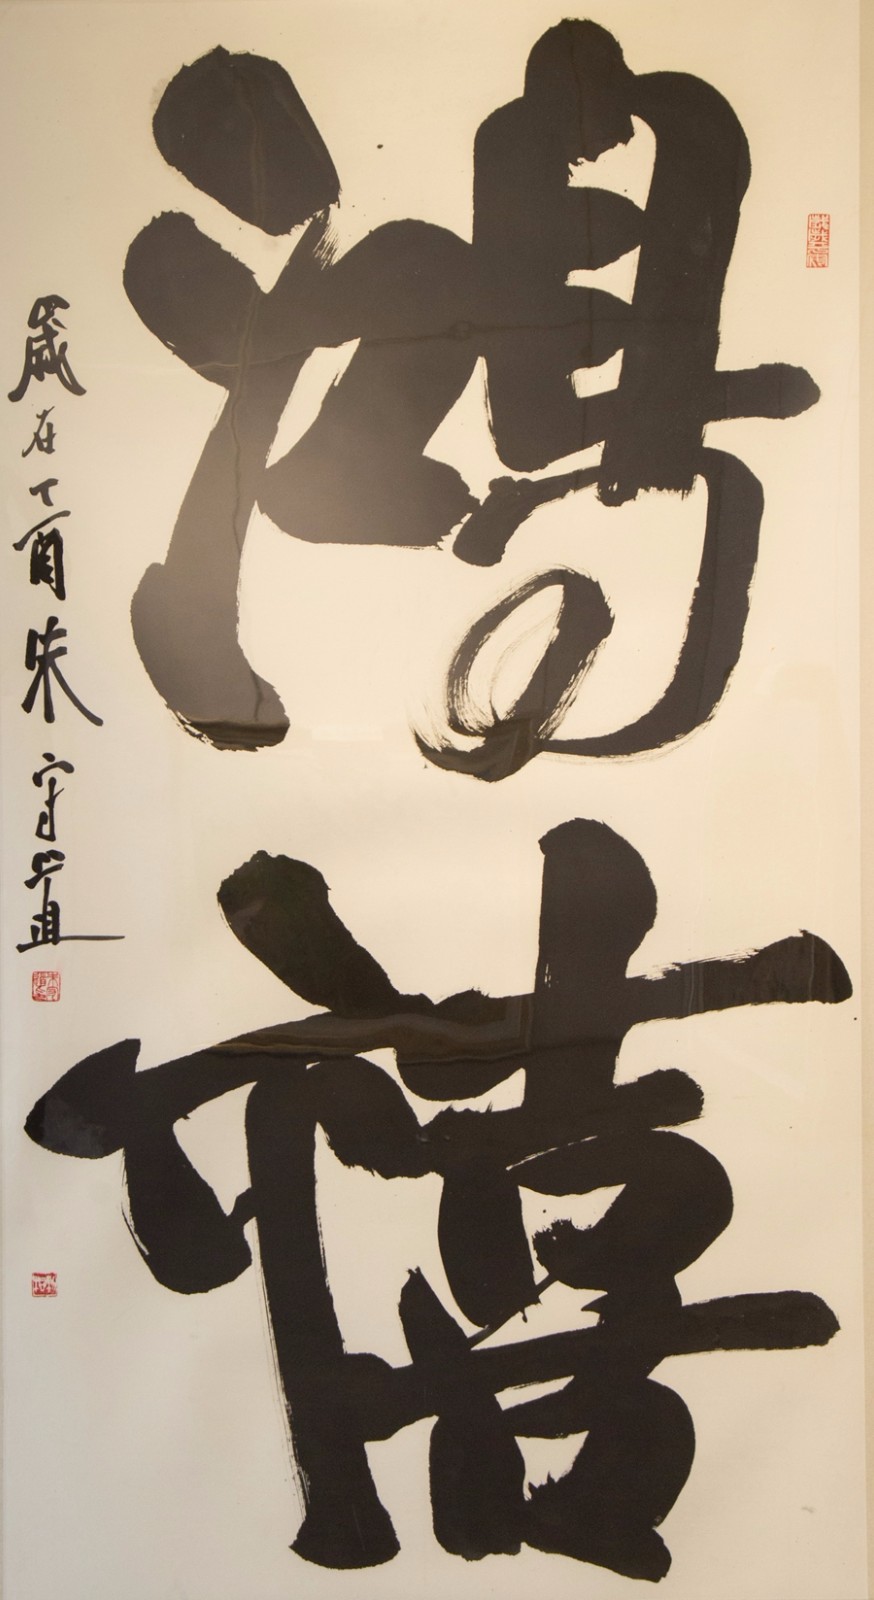 鴻禧
歲在丁酉朱守道